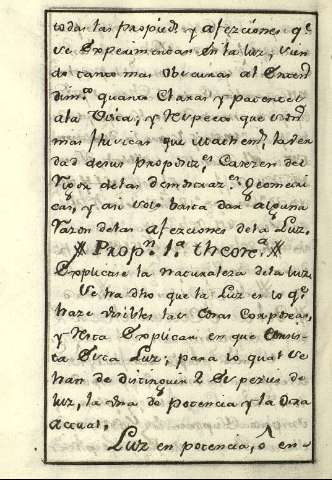 todas las Propied.s y afecziones q.e
se Experimentan en la luz, sien
do tanto mas obscuras al Entend
dim.to quanto Claras y patentes
a la Vista, y Respecto que son
mas fisicas que Mathem.s la ver
dad de sus Proposiz.es Carezen del
Rigor de las demostraz.es Geometri
cas, y asi solo basta dar alguna
Razon de las afecziones de la Luz.
Prop.n 1.a theore.a
Explicase la Naturaleza de la luz.
Se ha dho que la Luz es lo q.e
haze visibles las Cosas Corporeas,
y Resta Explicar en que Consis
ta Esta Luz; para lo qual se
han de distinguir 2 Especies de
luz, la Una de Potencia y la Otra
Actual.
Luz en potencia, ó en-